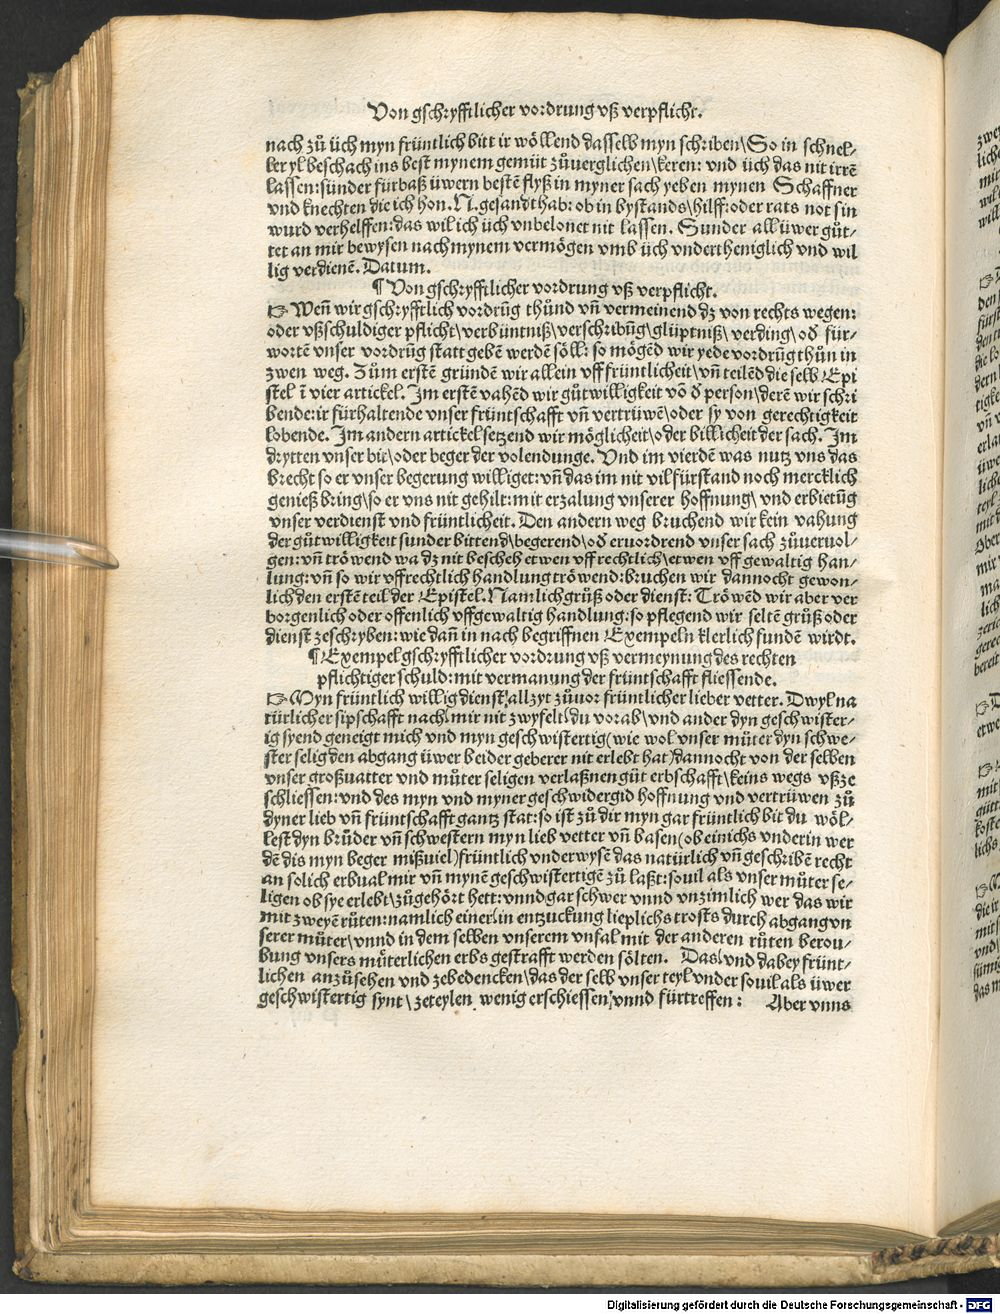 Von gschryfftlicher vordrung vß verpflicht.
nach zů üch myn früntlich bitt ir wöllend dasselb myn schriben\ So in schnel-
ler yl beschach ins best mynem gemüt zůuerglichen\ keren: vnd üch das nit irrē
lassen: sünder fürbaß üwern bestē flyß in myner sach yeben mynen Schaffner
vnd knechten die ich hon. N. gesandt hab: ob in bystands\ hilff: oder rats not sin
wurd verhelffen: das wil ich üch vnbelonet nit lassen. Sunder all üwer gůt-
tet an mir bewysen nach mynem vermögen vmb üch vndertheniglich vnd wil
lig verdienē. Datum.
¶ Von gschryfftlicher vordrung vß verpflicht.
☞ Weñ wir gschryfftlich vordrūg thůnd vñ vermeinend dz von rechts wegen:
oder vßschuldiger pflicht\ verbüntniß\ verschribūg\ glüptniß\ verding\ od̄ für-
wortē vnser vordrūg statt gebē werdē söll: so mögēd wir yede vordrūg thůn in
zwen weg. Zům erstē gründē wir allein vff früntlicheit\ vñ teilēd die selb Epi
stel ī vier artickel. Im erstē vahēd wir gůtwilligkeit vō d̄ person\ derē wir schri
bende: ir fürhaltende vnser früntschafft vñ vertrüwē\ oder sy von gerechtigkeit
lobende. Im andern artickel setzend wir möglicheit\ oder billicheit der sach. Im
drytten vnser bit\ oder beger der volendunge. Vnd im vierdē was nutz vns das
brecht so er vnser begerung williget: vñ das im nit vil fürstand noch mercklich
genieß bring\ so er vns nit gehilt: mit erzalung vnserer hoffnung\ vnd erbietūg
vnser verdienst vnd früntlicheit. Den andern weg bruchend wir kein vahung
der gůtwilligkeit sunder bittend\ begerend\ od̄ eruordrend vnser sach zůuervol-
gen: vñ tröwend wa dz nit bescheh etwen vff rechtlich\ etwen vff gewaltig han-
lung: vñ so wir vff rechtlich handlung tröwend: bruchen wir dannocht gewon-
lich den erstē teil der Epistel. Namlich grüß oder dienst: Tröwēd wir aber ver
borgenlich oder offenlich vff gewaltig handlung: so pflegend wir seltē grüß oder
dienst zeschryben: wie dañ in nach begriffnen Exempeln klerlich fundē wirdt.
¶ Exempel gschryfftlicher vordrung vß vermeynung des rechten
pflichtiger schuld: mit vermanung der früntschafft fliessende.
☞ Myn früntlich willig dienst\ allzyt zůuor früntlicher lieber vetter. Dwyl na
türlicher sipschafft nach\ mir nit zwyfelt\ du vorab\ vnd ander dyn geschwister-
ig syend geneigt mich vnd myn geschwistertig (wie wol vnser můter dyn schwe-
ster selig den abgang üwer beider geberer nit erlebt hat) dannocht von der selben
vnser großuatter vnd můter seligen verlaßnen gůt erbschafft\ keins wegs vßze
schliessen: vnd des myn vnd myner geschwidergid hoffnung vnd vertrüwen zů
dyner lieb vñ früntschafft gantz stat: so ist zů dir myn gar früntlich bit du wöl-
lest dyn brůder vñ schwestern myn lieb vetter vñ basen (ob einichs vnder in wer
dē dis myn beger mißuiel) früntlich vnderwysē das natürlich vñ geschribē recht
an solich erbual mir vñ mynē geschwistertigē zů laßt: souil als vnser můter se-
ligen ob sye erlebt\ zůgehört hett: vnnd gar schwer vnnd vnzimlich wer das wir
mit zweyē růten: namlich einer\ in entzuckung lieplichs trosts durch abgang vn
serer můter\ vnnd in dem selben vnserem vnfal mit der anderen růten berou-
bung vnsers můterlichen erbs gestrafft werden sölten. Das\ vnd dabey frünt-
lichen anzůsehen vnd zebedencken\ das der selb vnser teyl vnder souil als üwer
geschwistertig synt\ zeteylen wenig erschiessen\ vnnd fürtreffen: Aber vnns
Digitalisierung gefördert durch die Deutsche Forschungsgemeinschaft - DFG